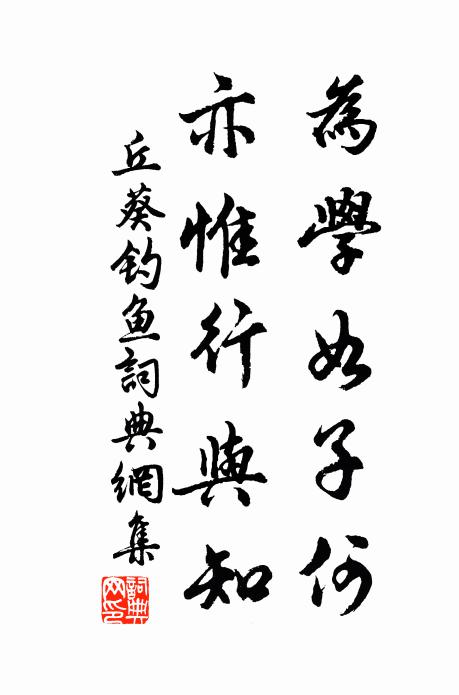 為學如子何
亦惟行與知
丘葵釣魚詞典網集
詞典
網印